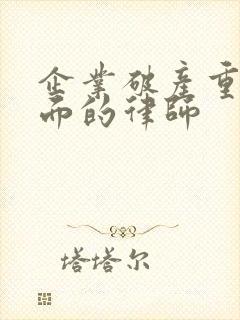 企業破產重
而的律師
塔塔尔